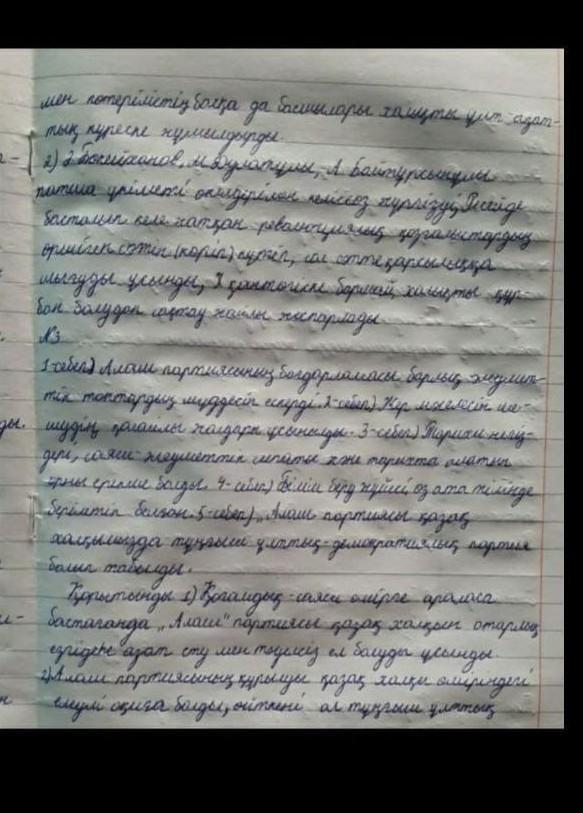 мен көтерілістің басқа да басшылары халықты ұлт-азат-
тық күреске жұмылдырды.
2) Ә Бөкейханов, М Дулатұлы, А Байтұрсынұлы
патша үкіметі өкілдерімен келіссөз жүргізуді, Ресейде
басталып келе жатқан революциялық қозғалыстардың
өрлейтін сәтін (кәріп) күтіп, сол сәтте қарсылыққа
шығуды ұсынды, қантөгіске бармай халықты құр-
бан болудан сақтау жағын жоспарлады
№3
1-себеп) Алаш партиясының бағдарламасы барлық әлеумет-
тік топтардың мүддесін ескерді. 2-себеп) Жер мәселесін ше-
шудің қолайлы жолдарын ұсынылды. 3-себеп) Тарихи негіз-
дері, саяси-әлеуметтік сипаты және тарихта алатын
орны ерекше болды. 4-себеп) Білім беру жүйесі өз ата тілінде
берілетін болған. 5-себеп) „Алаш партиясы қазақ
халқымызда тұңғыш ұлттық-демократиялық партия
болып табылды.
Қорытынды 1) Қоғамдық-саяси өмірге араласа
бастағанда „Алаш" партиясы қазақ халқын отарлық
езгіден азат ету мен тәуелсіз ел болуды ұсынды.
2) Алаш партиясының құрылуы қазақ халқы өміріндегі
елеулі оқиға болды, өйткені ол тұңғыш ұлттық
ды.